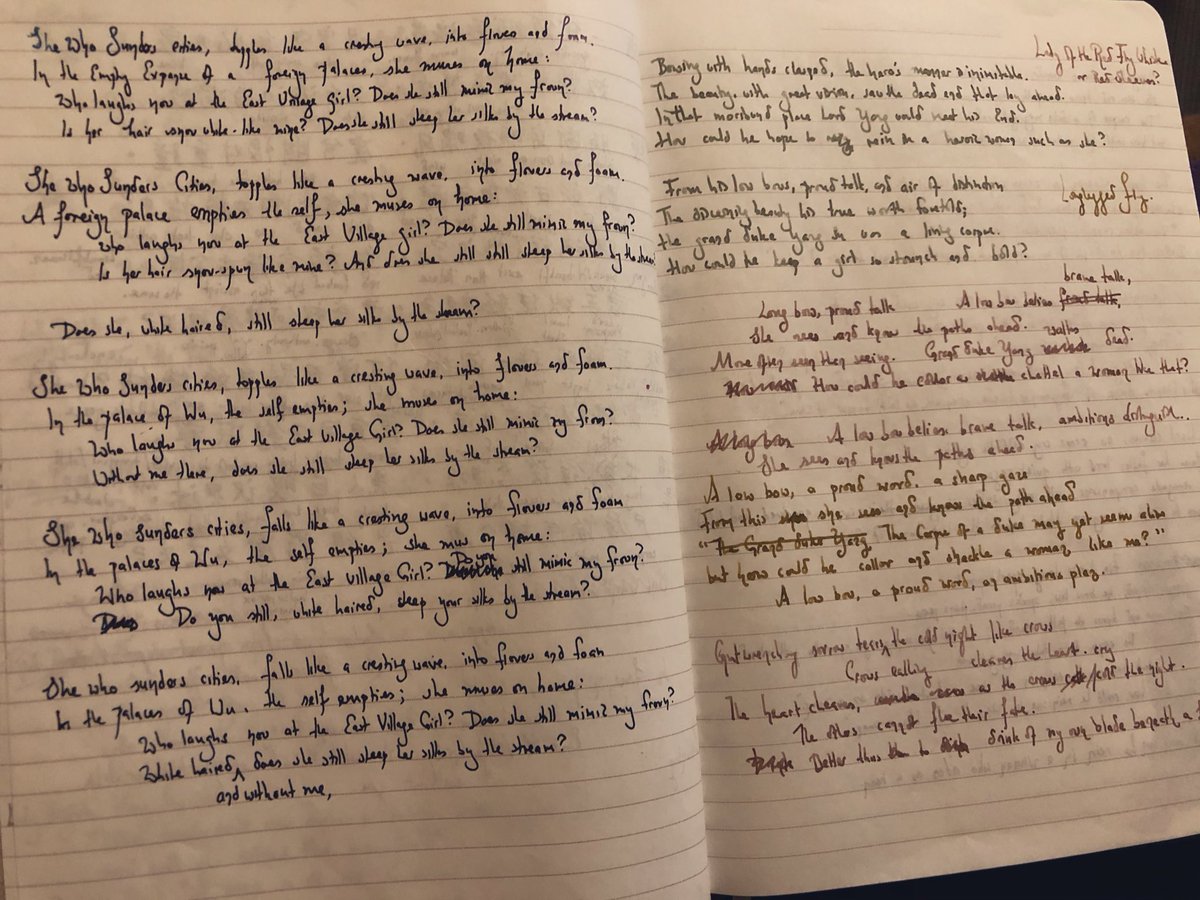 She Who Sunders cities, topples like a cresting wave, into flowers and foam.
In the Empty Expanse of a foreign Palaces, she muses on home:
Who laughs now at the East Village Girl? Does she still mimic my frown?
Is her hair snow white like mine? Does she still steep her silks by the stream?
She Who Sunders Cities, topples like a cresting wave, into flowers and foam.
A foreign palace empties the self, she muses on home:
Who laughs now at the East Village girl? Does she still mimic my frown?
Is her hair snow-spun like mine? And does she still still steep her silks by the stream
Does she, white haired, still steep her silks by the stream?
She Who Sunders cities, topples like a cresting wave, into flowers and foam.
In the Palace of Wu, the self empties; she muses on home:
Who laughs now at the East Village Girl? Does she still mimic my frown?
Without me there, does she still steep her silks by the stream?
She Who Sunders cities, falls like a cresting wave, into flowers and foam
In the palaces of Wu, the self empties; she muses on home:
Who laughs now at the East Village Girl? Do you still mimic my frown?
Do you still, white haired, steep your silks by the stream?
She who sunders cities, falls like a cresting wave, into flowers and foam
In the Palaces of Wu, the self empties; she muses on home:
Who laughs now at the East Village Girl? Does she still mimic my frown?
White haired, does she still steep her silks by the stream?
and without me,
Lady of the Red Fly Whisk
or Red
Bowing with hands clasped, the hero's manner is inimitable.
The beauty, with great vision, saw the dead end that lay ahead.
In that moribund place Lord Yang would meet his End.
How could he hope to rein in a heroic woman such as she?
Longlegged fly.
From his low bows, proud talk, and air of distinction
The discerning beauty his true worth foretells;
the grand duke Yang Su was a living corpse.
How could he keep a girl so staunch and bold?
brave talk,
Long bow, proud talk A low bow belies proud talk,
She sees and knows the paths ahead.
walks
More often seen than seeing. Grand Duke Yang dead.
How could he collar a chattel a woman like that?
A low bow belies brave talk, ambitions distinguish.
She sees and knows the paths ahead.
A low bow, a proud word, a sharp gaze
From this she sees and knows the path ahead
"The Grand Duke Yang The Corpse of a duke may yet seem alive
but how could he collar and shackle a woman like me?"
A low bow, a proud word, an ambitious play.
Gutwrenching sorrow tears the cold night like crows
Crows calling cleaves the heart. cry
The heart cleaves, as the crows the night.
The others cannot flee their fate.
Better thus to drink of my own blade beneath a